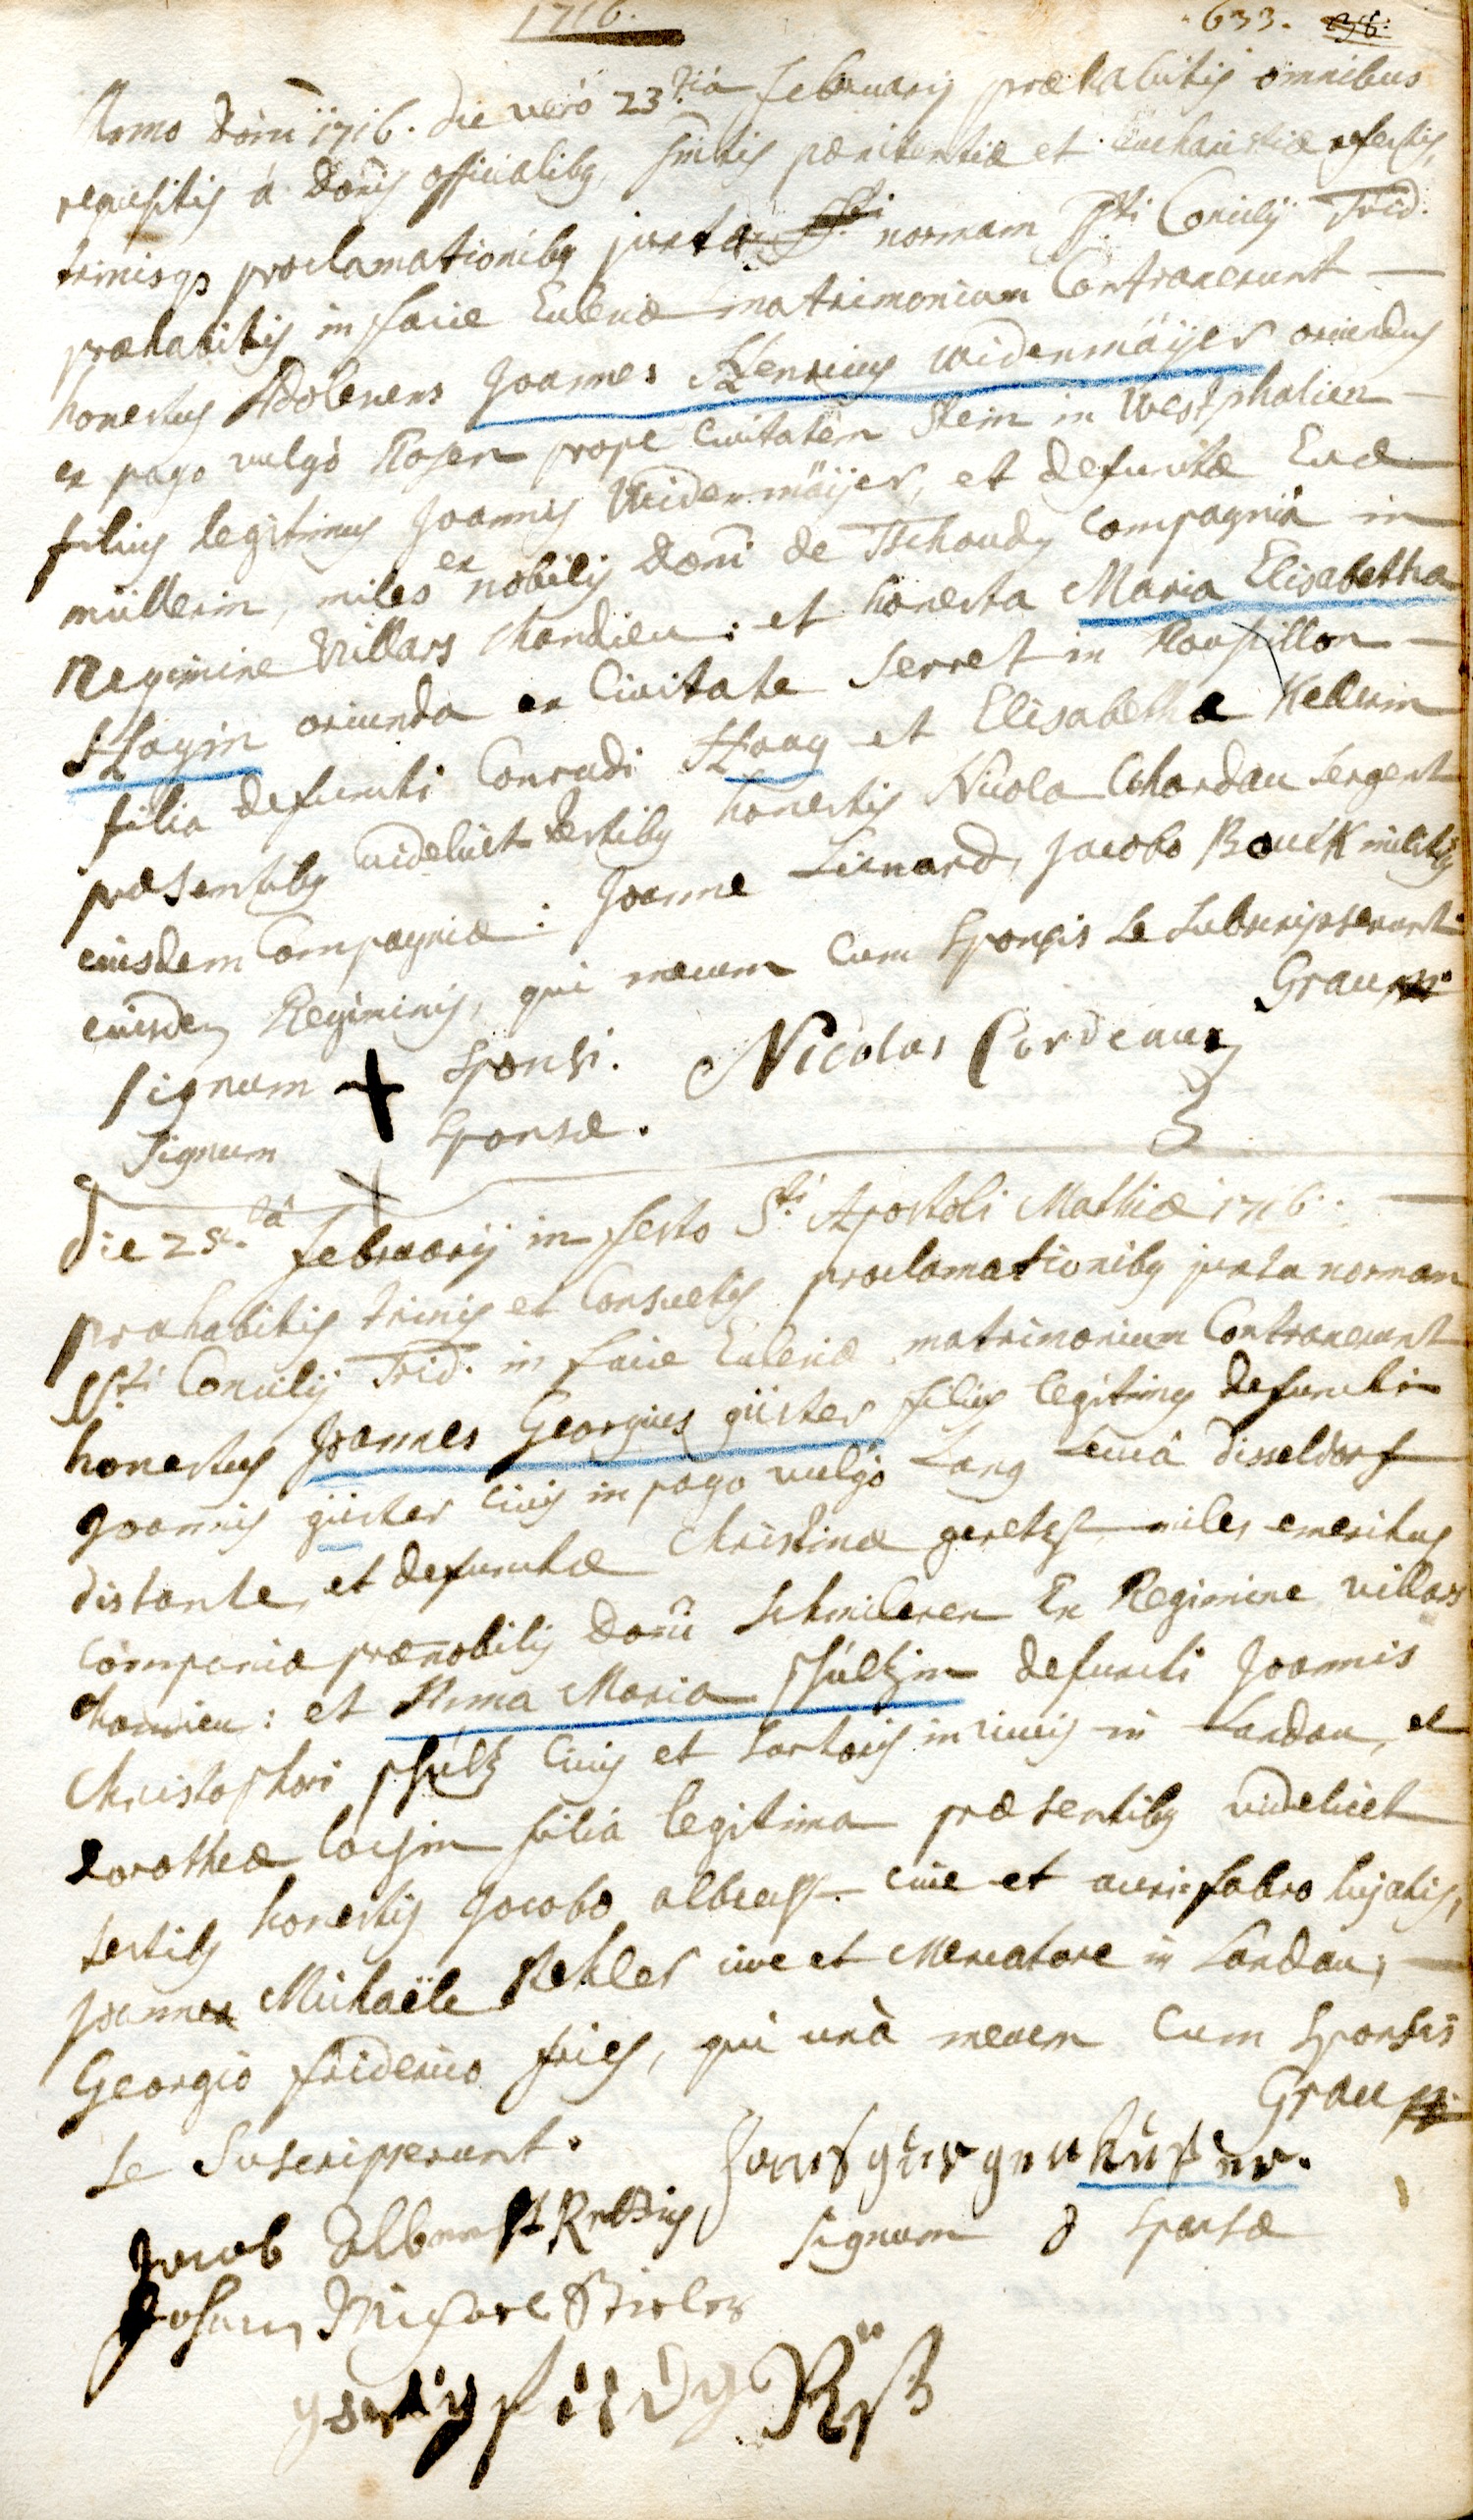 1716.
633. 236.
Anno Domi 1716. die verò 23tiâ Februarij præhabitis omnibus
requisitis à Domis officialibg, Smtis pœnitentiæ et Eucharistiæ refectis,
trinisqs proclamationibg juxta normam SSti Concilij Trid.
præhabitis in facie Ecclesiæ matrimonium Contraxerunt —
honestus Adolescens Joannes Henricus Widenmäÿer oriundus
ex pago vulgò Hosen prope Civitatem Stein in Westphalien
filius legitimus Joannis Widenmäÿer, et defunctæ Evæ
müllerin, miles ex nobilis Domi de Tschoudy Compagniâ in
Regimine Villars Chandieu: et honesta Maria Elisabetha
Hagin oriunda ex Civitate Serret in Roussillon —
filia defuncti Conradi Haag et Elisabethæ Kellerin
præsentibg videlicet testibg honestis Nicola Chardau sergent
eiusdem Compagniæ: Joanne Lienard, Jacobo Bouck militis
eiusdem Regiminis, qui mecum Cum Sponsis se subscripserunt
Grau
Signum + Sponsi. Nicolas Cordeaux
Signum + Sponsæ.
Die 25tâ Februarij in festo Sti Apostoli Mathiæ 1716. —
præhabitis trinis et Consuetis proclamationibg juxta normam
SSti Concilij Trid. in facie Ecclesiæ matrimonium Contraxerunt
honestus Joannes Georgius güster filius legitimus defuncti
Joannis güster Civis in pago vulgò Lang Leucâ Disseldorf
distante, et defunctæ Christinæ miles emeritus
Compania prænobilis Domi Ex Regimine villars
chandieu: et Anna Maria Schültzin defuncti Joannis
Christophori Schültz Civis et Sartoris in vivis in Landau, et
Dorotheæ filia legitima præsentibg videlicet
testibg honestis Jacobo albrecht Cive et aurifabro hujatis,
Joanne Michaële Kehler cive et Mercatore in Landau, —
Georgio friderico fries, qui unà mecum Cum Sponsis
Grau
se Suscripserunt.
Hans gürgen Küster.
Jacob Albrecht
Signum Sponsæ
Johann Michael